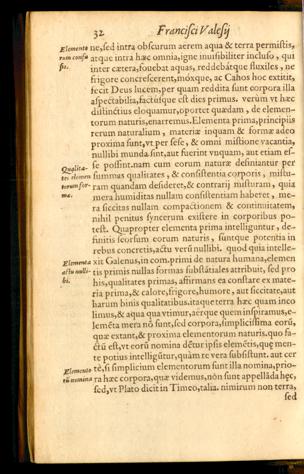 32 Francisci Valesij
Elementorum confusio.
ne, sed intra obscurum aerem aqua & terra permistis,
atque intra hæc omnia, igne inuisibiliter incluso, qui
inter cætera, fouebat aquas, reddebátque fluxiles, ne
frigore concrescerent, móxque, ac Cahos hoc extitit,
fecit Deus lucem, per quam reddita sunt corpora illa
aspectabilia, factúsque est dies primus. verùm vt hæc
distinctiùs eloquamur, oportet quædam, de elemen-
torum naturis, enarremus. Elementa prima, principiis
rerum naturalium, materiæ inquam & formæ adeo
proxima sunt, vt per sese, & omni mistione vacantia,
nullibi munda sint, aut fuerint vnquam, aut etiam es-
se possint. nam cum eorum naturæ desiniantur per
Qualitates elementorum formæ.
summas qualitates, & consistentia corporis, mistu-
ram quandam desideret, & contrarij misturam, quia
mera humiditas nullam consistentiam haberet, me-
ra siccitas nullam compactionem & continuitatem,
nihil penitus syncerum existere in corporibus po-
test. Quapropter elementa prima intelliguntur, de-
finitis seorsum eorum naturis, súntque potentia in
rebus concretis, actu verò nullibi. quod quia intelle-
Elementa actu nullibi.
xit Galenus, in com. primi de natura humana, elemen
tis primis nullas formas substátiales attribuit, sed pro
his, qualitates primas, affirmans ea constare ex mate-
ria prima, & calore, frigore, humore, aut siccitate, aut
harum binis qualitatibus. itaque terra hæc quam inco
limus, & aqua qua vtimur, aérque quem inspiramus, e-
leméta mera nó sunt, sed corpora, simplicissima eorú,
quæ extant, & proxima elementorum naturis. quo fa-
ctú est, vt eorú nomina détur ipsis eleméts, quę men-
te potius intelligútur, quàm re vera subsistunt. aut cer
Elementorú nomina
tè, si simplicium elementorum sunt illa nomina, prio-
ra hæc corpora, quæ videmus, nón sunt appelláda hęc,
sed, vt Plato dicit in Timeo, talia. nimirum non terra,
sed